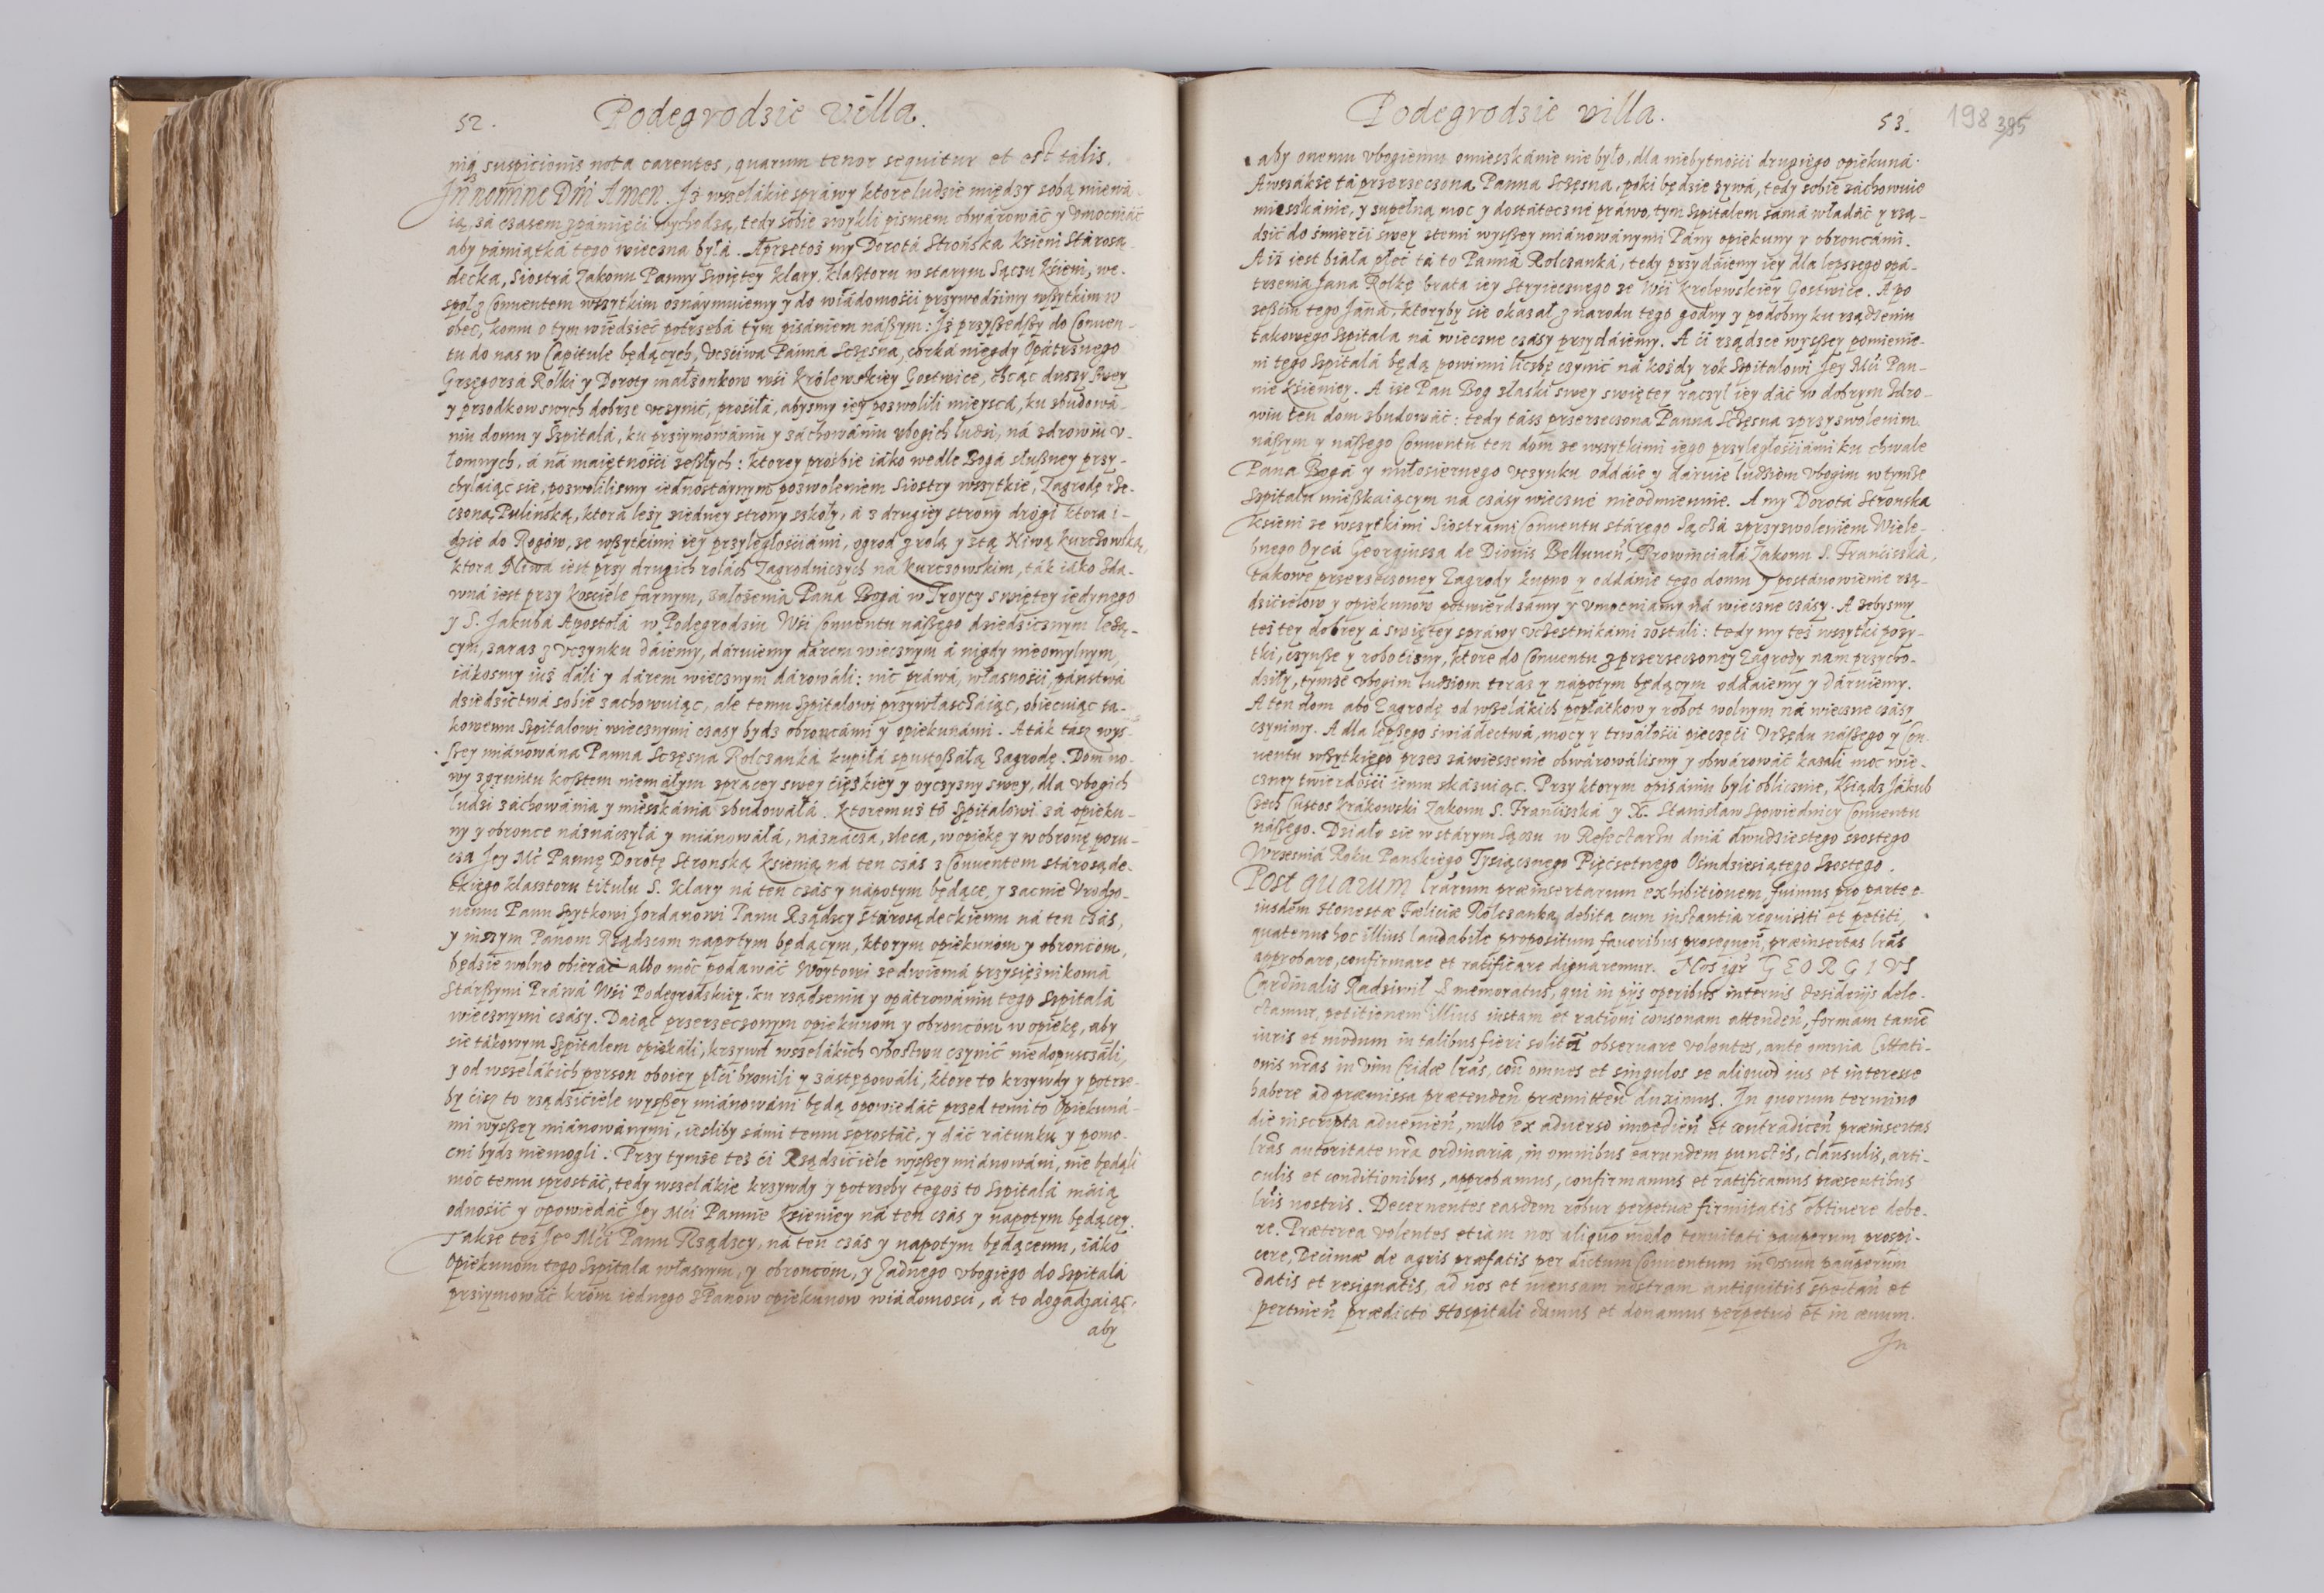 52.
Podegrodzie Villa.
niq3 suspicionis nota carentes, quarum tenor sequitur et est talis.
In nomine Dni Amen. Iż wszelákie spráwy ktore ludzie między sobą mienia-
ią, zá czasem z pámięći wychodzą, tedy sobie zwykli pismem obwárowáć y vmocniáć
aby pámiątká tego wieczna byłá. A przetoż my Dorotá Strońska Xieni Stárosą-
decka, Siostrá Zakonu Panny Swiętey Klary, klasztoru w starym Sączu Xieni, we-
społ z Conuentem wszytkim oznáymuiemy y do wiádomośći przywodźimy wszytkim w
obec, komu o tym wiedzieć potrzebá tym pisániem nászym: Iż przyszedszy do Conuen-
tu do nas w Capitule będących, vczćiwa Pánná Sczęsna, corká niegdy Opátrznego
Grzegorzá Rolki y Doroty małżonkow wśi Krolewskiey Gostwice, chcąc duszy swey
y przodkow swych dobrze vczynić, prośiłá, abysmy iey pozwolili mieyscá, ku zbudowá-
niu domu y Szpitalá, ku przyimowániu y záchowániu vbogich ludzi, ná zdrowiu v-
łomnych, á ná maiętnośći zeszłych: ktorey prośbie iáko wedle Bogá słuszney przy-
chylaiąc sie, pozwolilismy iednostáynym pozwoleniem Siostry wszytkie, Zagrodę rze-
czoną Pulinską, ktora leży z iedney strony szkoły, á z drugiey strony drogi ktora i-
dzie do Rogow, ze wszytkimi iey przyległośćiámi, ogrod z rolą y z tą Niwą Kurczowską,
ktora Niwa iest przy drugich rolách Zagrodniczych ná Kurczowskim, ták iáko zda-
wná iest przy Kośćiele fárnym, záłożenia Páná Bogá w Troycy Swiętey iedynego
y S. Jakubá Apostołá w Podegrodziu Wśi Conuentu nászego dziedzicznym leżą-
cym, zaraz z vczynku dáiemy, dáruiemy dárem wiecznym á nigdy nieomylnym,
iákosmy iuż dáli y dárem wiecznym dárowáli: nic práwá, własnośći, páństwá
dziedzictwá sobie zachowuiąc, ale temu Szpitalowi przywłaszczáiąc, obiecuiąc ta-
kowemu Szpitalowi wiecznymi czasy bydz obrońcámi y opiekunámi. A ták táż wys-
szey miánowána Panna Sczęsna Rolczanká kupiłá spustoszáłą Zagrodę. Dom no-
wy z gruntu kosztem niemáłym z pracey swey ćięszkiey y oyczyzny swey, dla vbogich
ludzi záchowánia y mieszkánia zbudowáłá. Ktoremuż to Szpitalowi zá opieku-
ny y obronce náznáczyłá y miánowáłá, náznácza, zleca, w opiekę y w obronę poru-
cza Jey Mć Pannę Dorotę Stronską Xienią ná ten czás z Conuentem stárosáde-
ckiego klasztoru titułu S. Klary ná ten czás y nápotym będące, y zacnie Vrodzo-
nemu Panu Spytkowi Jordanowi Panu Rządzcy stárosądeckiemu ná ten czás,
y inszym Pánom Rządzcom napotym będącym, ktorym opiekunom y obroncom,
będzie wolno obieráć albo moc podawáć Woytowi ze dwiemá przysiężnikomá
Stárszymi Práwá Wśi Podegrodskiey, ku rządzeniu y opátrowániu tego Szpitalá
wiecznymi czásy. Daiąc przerzeczonym opiekunom y obroncom w opiekę, aby
sie tákowym Szpitalem opiekáli, krzywd wszelákich vbostwu czynić niedopuszczáli,
y od wszelákich person oboiey płći bronili y zástępowáli, ktore to krzywdy y potrze-
by ćisz to rządziciele wyszszey miánowáni będą opowiedáć przed temi to Opiekuná-
mi wyszszey miánowánymi, iesliby sámi temu sprostáć, y dáć rátunku y pomo-
cni bydz niemogli. Przy tymże też ći Rządziciele wyszszey miánowáni, nie będąli
moc temu sprostáć, tedy wszelákie krzywdy y potrzeby tegoż to Szpitalá máią
odnośić y opowiedáć Jey Mći Pannie Xieniey ná ten czás y napotym będącey.
Także też Jeo Mći Panu Rządzcy, ná ten czás y napotym będącemu, iáko
Opiekunom tego Szpitala własnym, y obroncom, y żadnego vbogiego do Szpitalá
przyimowáć krom iednego z Panow opiekunow wiádomośći, á to dogadzaiąc,
aby
Podegrodzie villa.
53.
198
395
aby onemu vbogiemu omieszkánie nie było, dla niebytnośći drugiego opiekuná.
A wszákże tá przerzeczona Panna Sczęsna, poki będzie żywá, tedy sobie záchowuie
mieszkánie, y zupełną moc y dostáteczne práwo, tym Szpitalem sámá władáć y rzą-
dzić do śmierći swey z temi wyszszey miánowánymi Pány opiekuny y obroncámi.
A iż iest biała płeć tá to Panná Rolczanká, tedy przydáiemy iey dla lepszego opá-
trzenia Jana Rolkę brata iey Stryiecznego ze Wśi Krolewskiey Gostwice. A po
ześćiu tego Janá, ktoryby sie okazał z narodu tego godny y podobny ku rządzeniu
takowego Szpitala ná wieczne czásy przydáiemy. A ći rządzce wyszszey pomienie-
ni tego Szpitalá będą powinni liczbę czynić ná kożdy rok Szpitalowi Jey Mći Pan-
nie Xieniey. A iże Pan Bog z łaski swey swiętey raczył iey dáć w dobrym zdro-
wiu ten dom zbudowáć: tedy tász przerzeczona Panná Sczęsna z przyzwolenim
nászym y nászego Conuentu ten dom ze wszytkimi iego przyległośćiámi ku chwale
Pana Bogá y miłosiernego vczynku oddáie y dáruie ludziom vbogim w tymże
Szpitalu mieszkáiącym ná czásy wieczne nieodmiennie. A my Dorotá Stronska
Xieni ze wszytkimi Siostrámi Conuentu stárego Sączá z przyzwoleniem Wiele-
bnego Oycá Georgiusza de Dionis Belluneñ, Prowinciałá Zakonu S. Franciszká,
takowe przerzeczoney Zagrody kupno y oddánie tego domu y postánowienie rzą-
dzićielow y opiekunow potwierdzamy y vmocniamy ná wieczne czásy. A żebysmy
też tey dobrey á swiętey spráwy vczestnikámi zostáli: tedy my też wszytki poży-
tki, czynsze y robocizny, ktore do Conuentu z przerzeczoney Zagrody nam przycho-
dziły, tymże vbogim ludziom teraz y nápotym będącym oddaiemy y dáruiemy.
A ten dom ábo Zagrodę od wszelákich podatkow y robot wolnym ná wieczne czásy
czynimy. A dla lepszego swiádectwá, mocy y trwáłośći pieczęći Vrzędu nászego y Con-
uentu wszytkiego przez záwieszenie obwárowálismy y obwárowáć kazáli moc wie-
czney twierdośći iemu skázuiąc. Przy ktorym opisániu byli oblicznie, Xiądz Jákub
Czech Custos Krákowski Zakonu S. Franciszká y X. Stanisław Spowiednicy Conuentu
nászego. Działo sie w stárym Sączu w Refectarzu dniá dwudziestego szostego
Wrzesniá Roku Panskiego Tysiącznego Pięćsetnego Ośmdziesiątego Szostego.
Post quarum lrarum præinsertarum exhibitionem, fuimus pro parte e-
iusdem Honestæ Fæliciæ Rolczanka debita cum instantia requisiti et petiti,
quatenus hoc illius laudabile propositum fauoribus prosequeñ, præinsertas lras
approbare, confirmare et ratificare dignaremur. Nos igr GEORGIVS
Cardinalis Radziwił S memoratus, qui in pijs operibus internis desiderijs dele-
ctamur, petitionem illius iustam et rationi consonam attendeñ, formam tamē
iuris et modum in talibus fieri solitū obseruare volentes, ante omnia Cittati-
onis nras in vim Cridæ lras, con omnes et singulos se aliquod ius et interesse
habere ad præmissa prætendeñ præmitteñ duximus. In quorum termino
die inscripta adueniеñ, nullo ex aduerso impedieñ et contradiceñ præinsertas
lras autoritate nra ordinaria, in omnibus earundem punctis, clausulis, arti-
culis et conditionibus, approbamus, confirmamus et ratificamus præsentibus
lris nostris. Decernentes easdem robur perpetuæ firmitatis obtinere debe-
re. Præterea volentes etiam nos aliquo modo tenuitati pauperum prospi-
cere, Decimæ de agris præfatis per dictum Conuentum in vsum pauperum
datis et resignatis, ad nos et mensam nostram antiquitus spectañ et
pertineñ prædicto Hospitali damus et donamus perpetuo et in æuum.
In